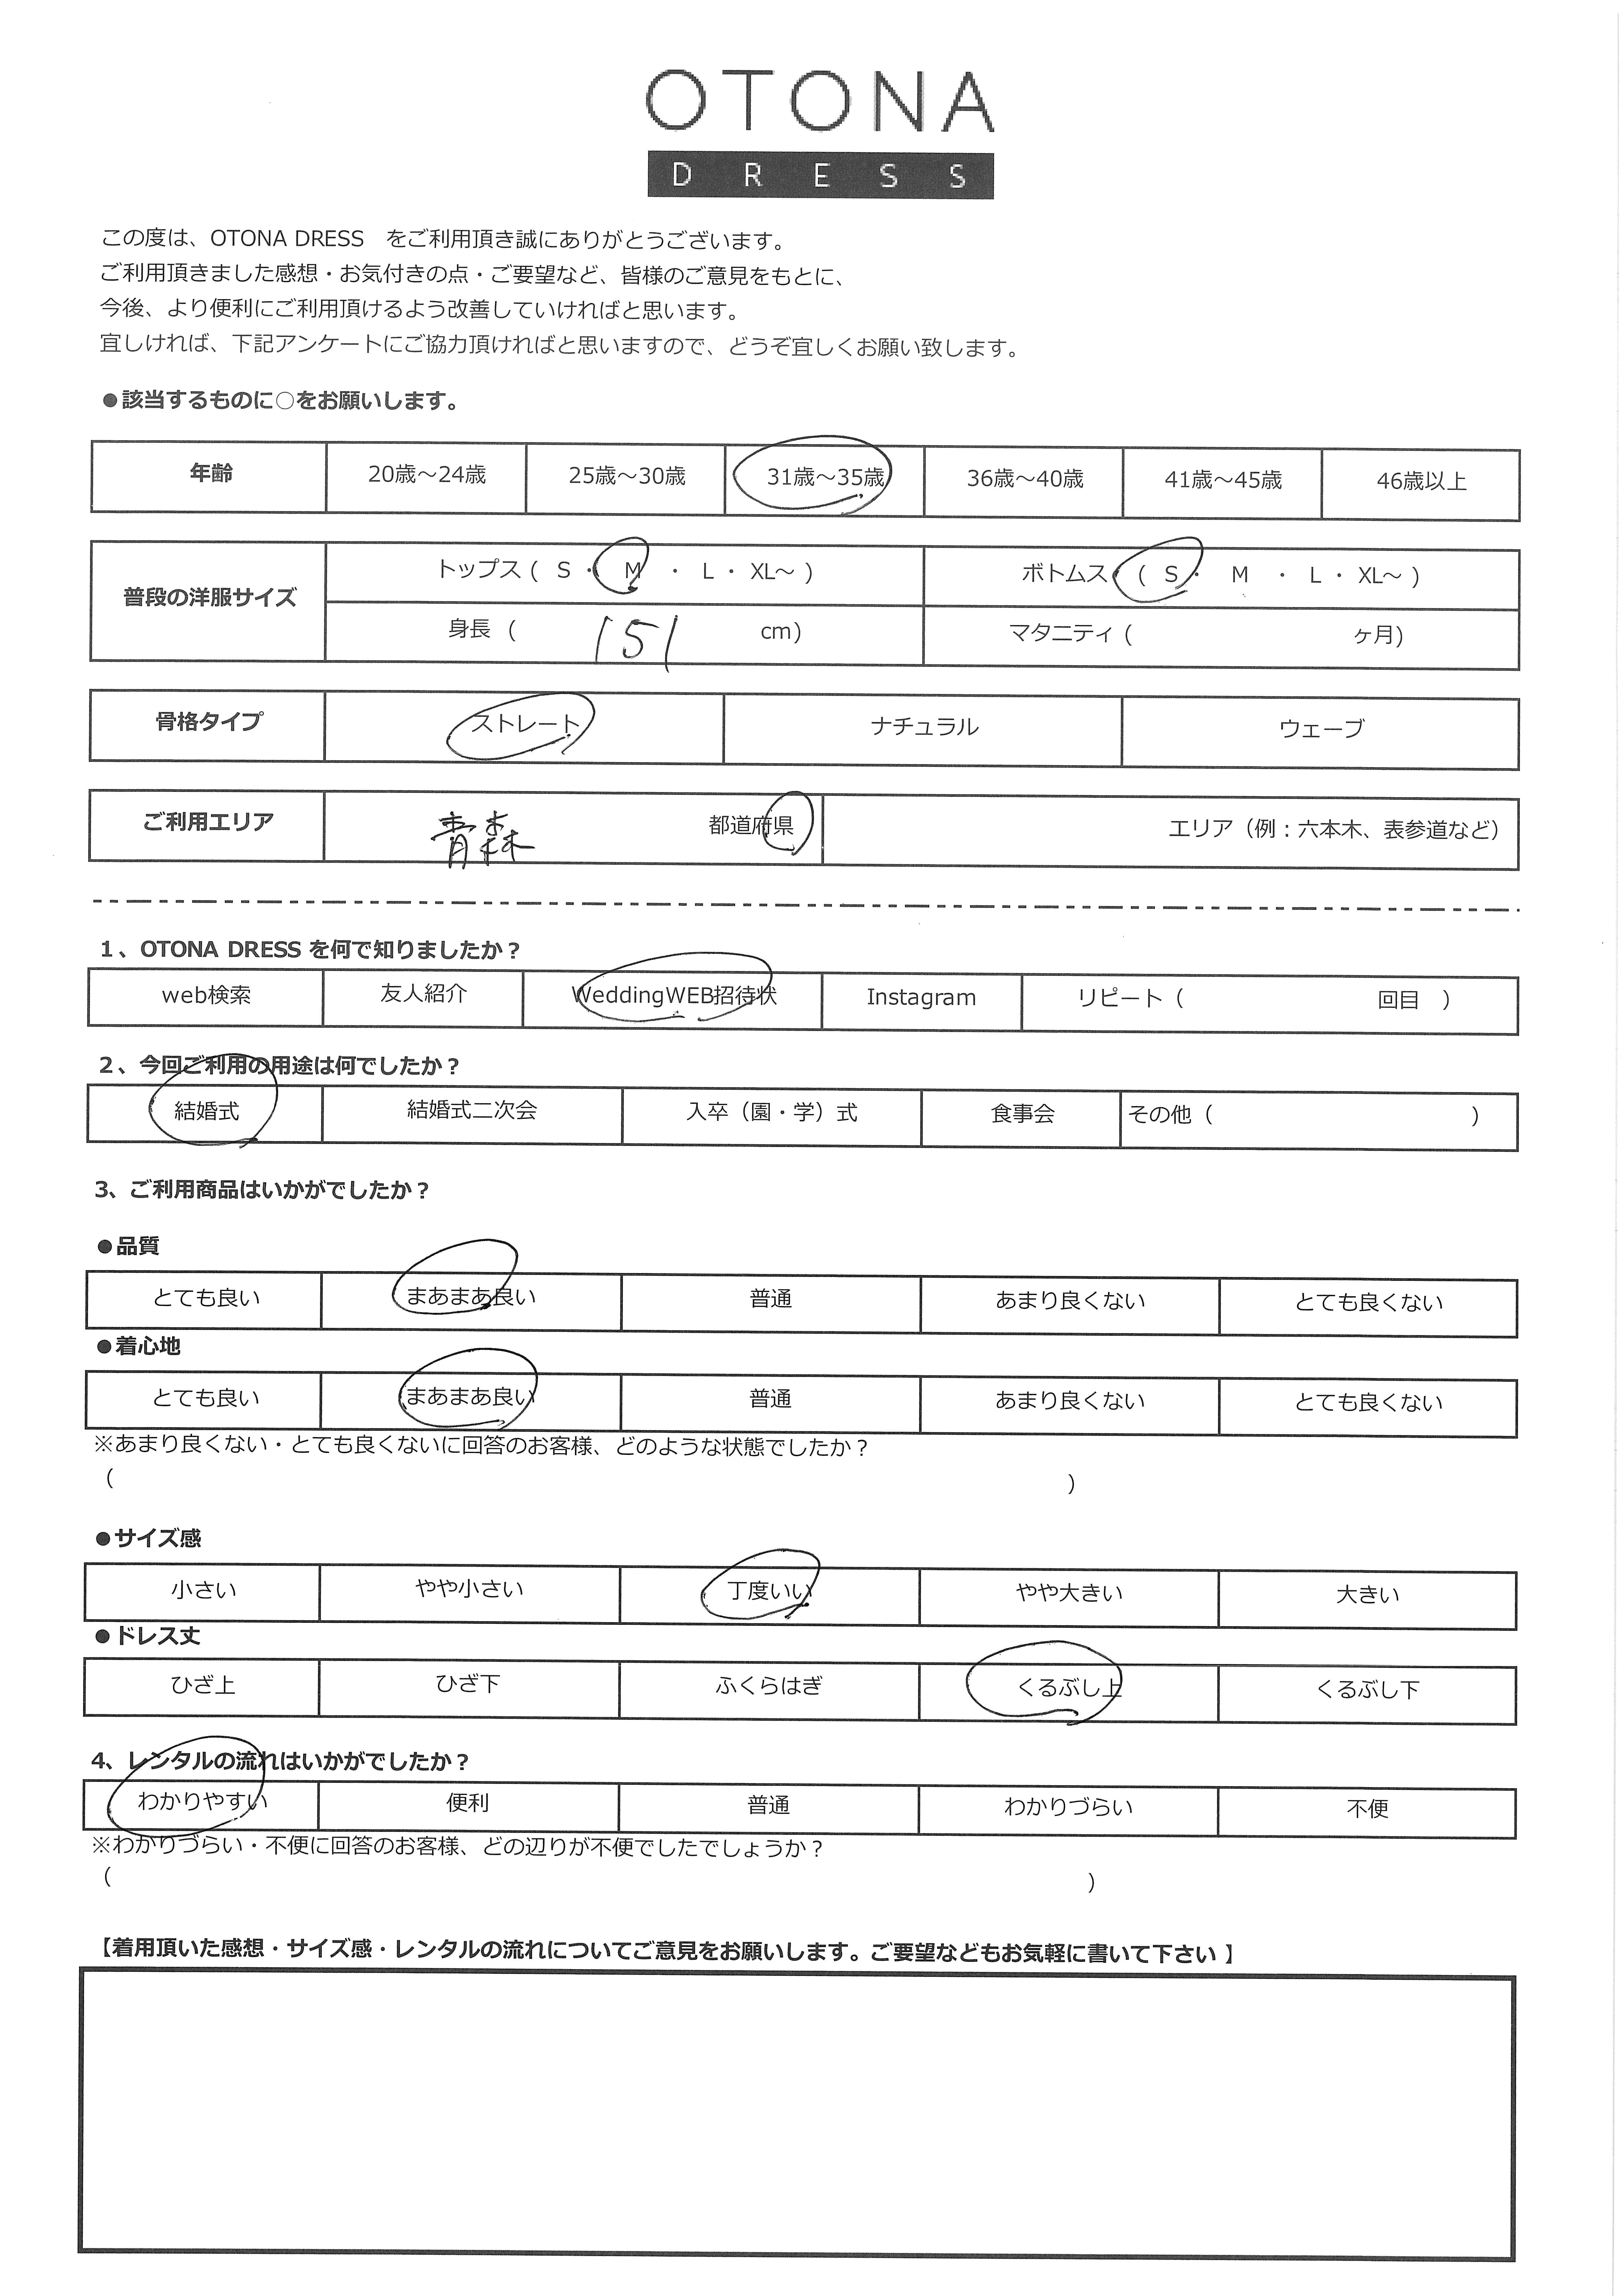 OTONA
DRESS
この度は、OTONA DRESS をご利用頂き誠にありがとうございます。
ご利用頂きました感想・お気付きの点・ご要望など、皆様のご意見をもとに、
今後、より便利にご利用頂けるよう改善していければと思います。
宜しければ、下記アンケートにご協力頂ければと思いますので、どうぞ宜しくお願い致します。
●該当するものに○をお願いします。
年齢 20歳～24歳 25歳～30歳 31歳～35歳 36歳～40歳 41歳～45歳 46歳以上
普段の洋服サイズ トップス ( S ・ M ・ L ・ XL～ ) ボトムス ( S ・ M ・ L ・ XL～ )
身長 ( 151 cm) マタニティ ( ヶ月)
骨格タイプ ストレート ナチュラル ウェーブ
ご利用エリア 青森 都道府県 エリア（例：六本木、表参道など）
1、OTONA DRESS を何で知りましたか？
web検索 友人紹介 WeddingWEB招待状 Instagram リピート（ 回目 ）
2、今回ご利用の用途は何でしたか？
結婚式 結婚式二次会 入卒（園・学）式 食事会 その他（ ）
3、ご利用商品はいかがでしたか？
●品質
とても良い まあまあ良い 普通 あまり良くない とても良くない
●着心地
とても良い まあまあ良い 普通 あまり良くない とても良くない
※あまり良くない・とても良くないに回答のお客様、どのような状態でしたか？
（ ）
●サイズ感
小さい やや小さい 丁度いい やや大きい 大きい
●ドレス丈
ひざ上 ひざ下 ふくらはぎ くるぶし上 くるぶし下
4、レンタルの流れはいかがでしたか？
わかりやすい 便利 普通 わかりづらい 不便
※わかりづらい・不便に回答のお客様、どの辺りが不便でしたでしょうか？
（ ）
【着用頂いた感想・サイズ感・レンタルの流れについてご意見をお願いします。ご要望などもお気軽に書いて下さい 】